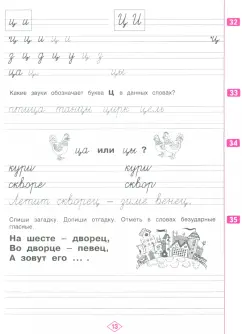 ц и Ц И 32
Ц и Ц и и Ц
д ц д ц у ц з
ца ц ци цы
Какие звуки обозначает буква Ц в данных словах? 33
птица танцы цирк цель
34
ца или цы ?
кури кури
скворе сквор
Летит скворец –
35
Спиши загадку. Допиши отгадку. Отметь в словах безударные
гласные.
На шесте – дворец,
Во дворце – певец,
А зовут его ... .
13